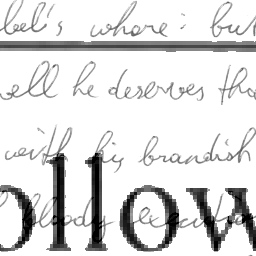 bel's whore: but
well he deserves tha
with his brandish
bloody execution
ollow